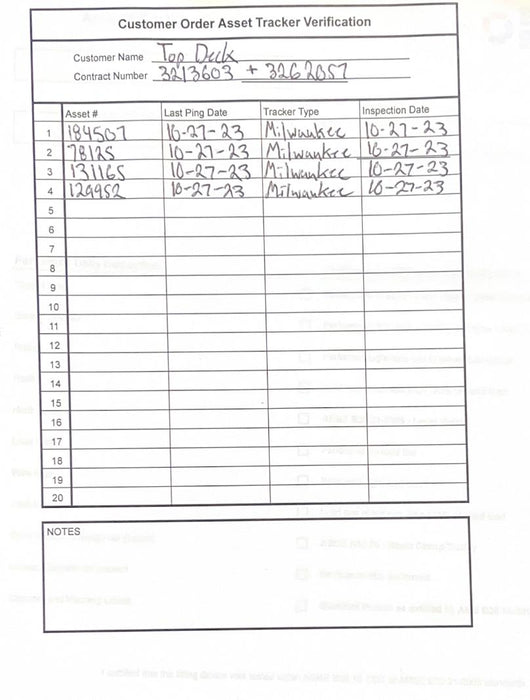 Customer Order Asset Tracker Verification
Customer Name Top Deck
Contract Number 3213603 + 3262057
Asset # Last Ping Date Tracker Type Inspection Date
1 184507 10-27-23 Milwaukee 10-27-23
2 78125 10-27-23 Milwaukee 10-27-23
3 131165 10-27-23 Milwaukee 10-27-23
4 129952 10-27-23 Milwaukee 10-27-23
5
6
7
8
9
10
11
12
13
14
15
16
17
18
19
20
NOTES